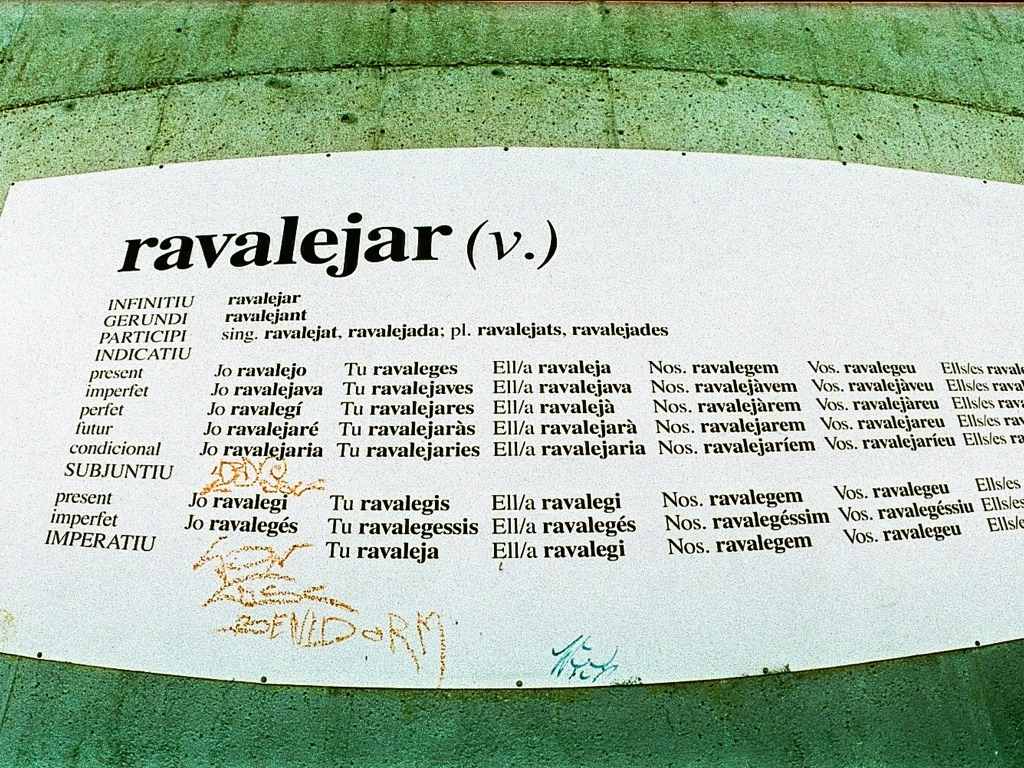 ravalejar (v.)
INFINITIU ravalejar
GERUNDI ravalejant
PARTICIPI sing. ravalejat, ravalejada; pl. ravalejats, ravalejades
INDICATIU
present Jo ravalejo Tu ravaleges Ell/a ravaleja Nos. ravalegem Vos. ravalegeu Ells/es ravale
imperfet Jo ravalejava Tu ravalejaves Ell/a ravalejava Nos. ravalejàvem Vos. ravalejàveu Ells/es raval
perfet Jo ravalegí Tu ravalejares Ell/a ravalejà Nos. ravalejàrem Vos. ravalejàreu Ells/es rava
futur Jo ravalejaré Tu ravalejaràs Ell/a ravalejarà Nos. ravalejarem Vos. ravalejareu Ells/es rav
condicional Jo ravalejaria Tu ravalejaries Ell/a ravalejaria Nos. ravalejaríem Vos. ravalejaríeu Ells/es ra
SUBJUNTIU
present Jo ravalegi Tu ravalegis Ell/a ravalegi Nos. ravalegem Vos. ravalegeu Ells/es
imperfet Jo ravalegés Tu ravalegessis Ell/a ravalegés Nos. ravalegéssim Vos. ravalegéssiu Ells/es
IMPERATIU Tu ravaleja Ell/a ravalegi Nos. ravalegem Vos. ravalegeu Ells/es
BENIDORM